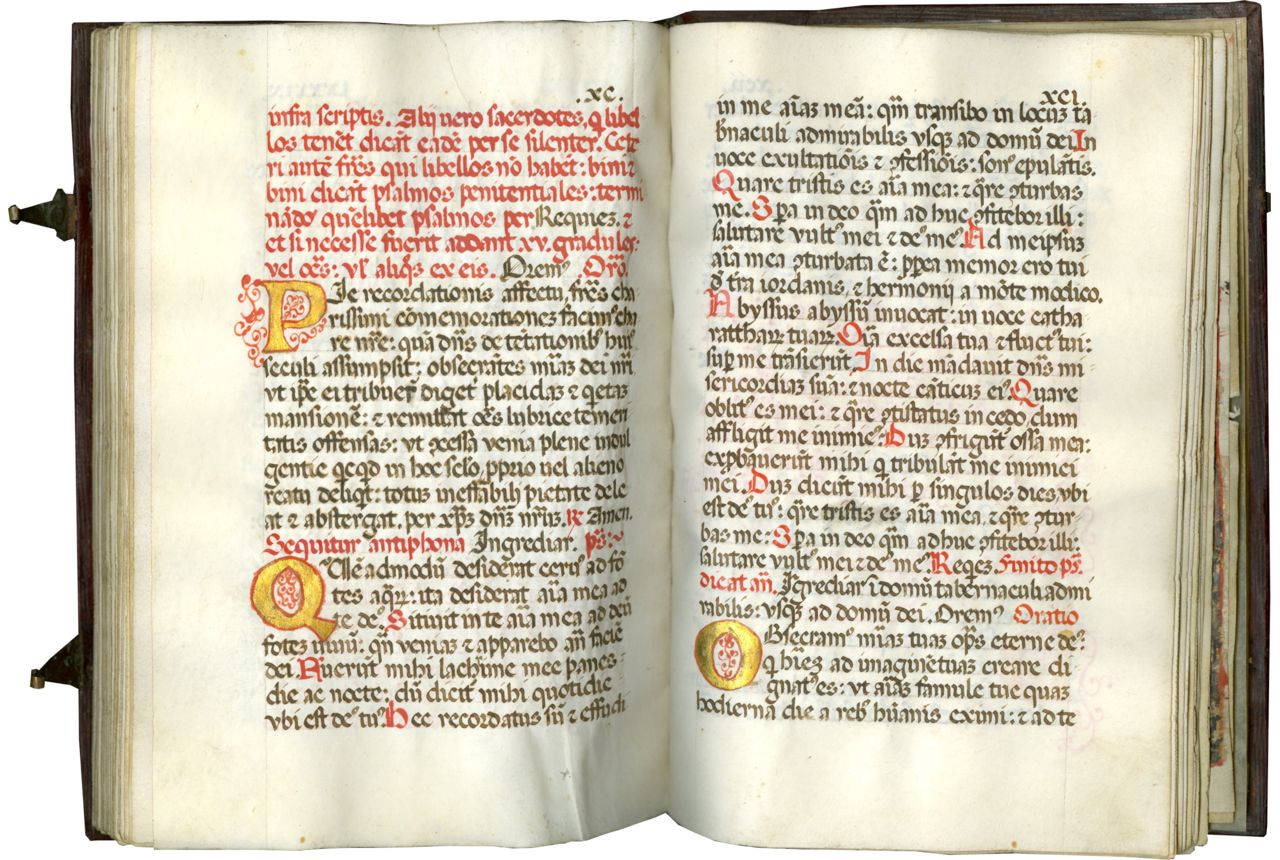 .xc.
infra scriptis. Alij uero sacerdotes, q̃ libel
los tenẽt dicãt eadẽ per se silenter. Cete
ri autẽ frẽs qui libellos nõ habẽt: bini ⁊
bini dicãt psalmos penitentiales: termi
nãdo quẽlibet psalmos per Requiez. ⁊
et si necesse fuerit addant xv. graduales:
vel oẽs: vl' aliq̃s ex eis. Oremꝰ. Orõ.
PJe recordationis affectu, frẽs cha
rissimi cõmemorationez facimꝰ cha
re nr̃e: quã dñs de tẽtationibꝰ huiꝰ
seculi assumpsit: obsecrãtes miãz dei nr̃i
vt ip̃e ei tribuere digẽt placidaz ⁊ q̃etaz
mansionẽ: ⁊ remittat oẽs lubrice temeri
tatis offensas: vt ꝯcessa venia plene indul
gentie qcqd in hoc sclo, pprio uel alieno
reatu deliqt: totuz ineffabili pietate dele
at ⁊ abstergat. per xp̃z dñz nr̃uz. ℟ Amen.
Sequitur antiphona Ingrediar. ps̃:
QUẽadmodũ desiderat ceruꝰ ad fõ
tes aqrꝝ: ita desiderat aĩa mea ad
te deꝰ. Sitiuit in te aĩa mea ad deũ
fotez uiuũ: qñ veniaz ⁊ apparebo añ faciẽ
dei. Fuerũt mihi lachrime mee panes
die ac nocte: dũ dicit̃ mihi quotidie
vbi est deꝰ tuꝰ. Hec recordatus sũ ⁊ effudi
xci
in me aĩaz meã: qm̃ transibo in locũz ta
b̃naculi admirabilis vsqz ad domũ dei. In
uoce exultatiõis ⁊ ꝯfessiõis: sonꝰ epulãtis.
Quare tristis es aĩa mea: ⁊ q̃re ꝯturbas
me. Spa in deo qm̃ ad huc ꝯfitebor illi:
salutare vultꝰ mei ⁊ deꝰ meꝰ. Ad meipsũz
aĩa mea ꝯturbata ẽ: ppea memor ero tui
d' tr̃a iordanis, ⁊ hermonij a mõte modico.
Abyssus abyssũ inuocat: in uoce catha
rattharꝝ tuarꝝ. Oĩa excelsa tua ⁊ fluctꝰ tui:
suꝑ me trãsierũt. In die mãdauit dñs mi
sericordiaz suã: ⁊ nocte cãticuz eiꝰ. Quare
oblitꝰ es mei: ⁊ q̃re ꝯtristatus incedo, dum
affligit me inimicꝰ. Duz ꝯfrigũt ossa mea:
exprobauerũt mihi q̃ tribulãt me inimici
mei. Duz dicũt mihi ꝑ singulos dies vbi
est deꝰ tuꝰ: q̃re tristis es aĩa mea, ⁊ q̃re ꝯtur-
bas me: Spa in deo qm̃ adhuc ꝯfitebor illi:
salutare vultꝰ mei ⁊ deꝰ meꝰ. Reqez. Finito ps̃.
dicat añ. Igrediar ĩ domũ tabernaculi admi
rabilis: vsqz ad domũ dei. Oremꝰ. Oratio
OBsecramꝰ miãz tuaz oꝑs eterne deꝰ:
q hiẽz ad imaginẽ tuaz creare di
gnatꝰ es: vt aĩaz famule tue quaz
hodierna die a rebꝰ hũanis eximi: ⁊ ad te